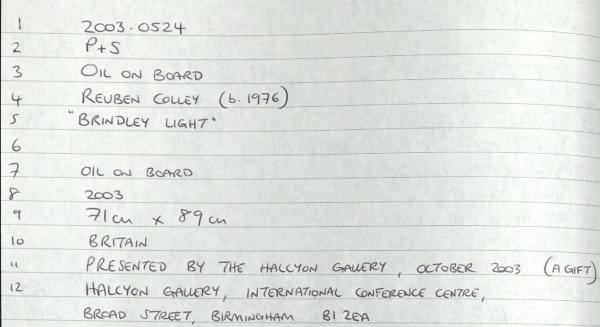 1 2003.0524
2 P+S
3 OIL ON BOARD
4 REUBEN COLLEY (b. 1976)
5 "BRINDLEY LIGHT"
6
7 OIL ON BOARD
8 2003
9 71cm x 89cm
10 BRITAIN
11 PRESENTED BY THE HALCYON GALLERY, OCTOBER 2003 (A GIFT)
12 HALCYON GALLERY, INTERNATIONAL CONFERENCE CENTRE,
BROAD STREET, BIRMINGHAM B1 2EA